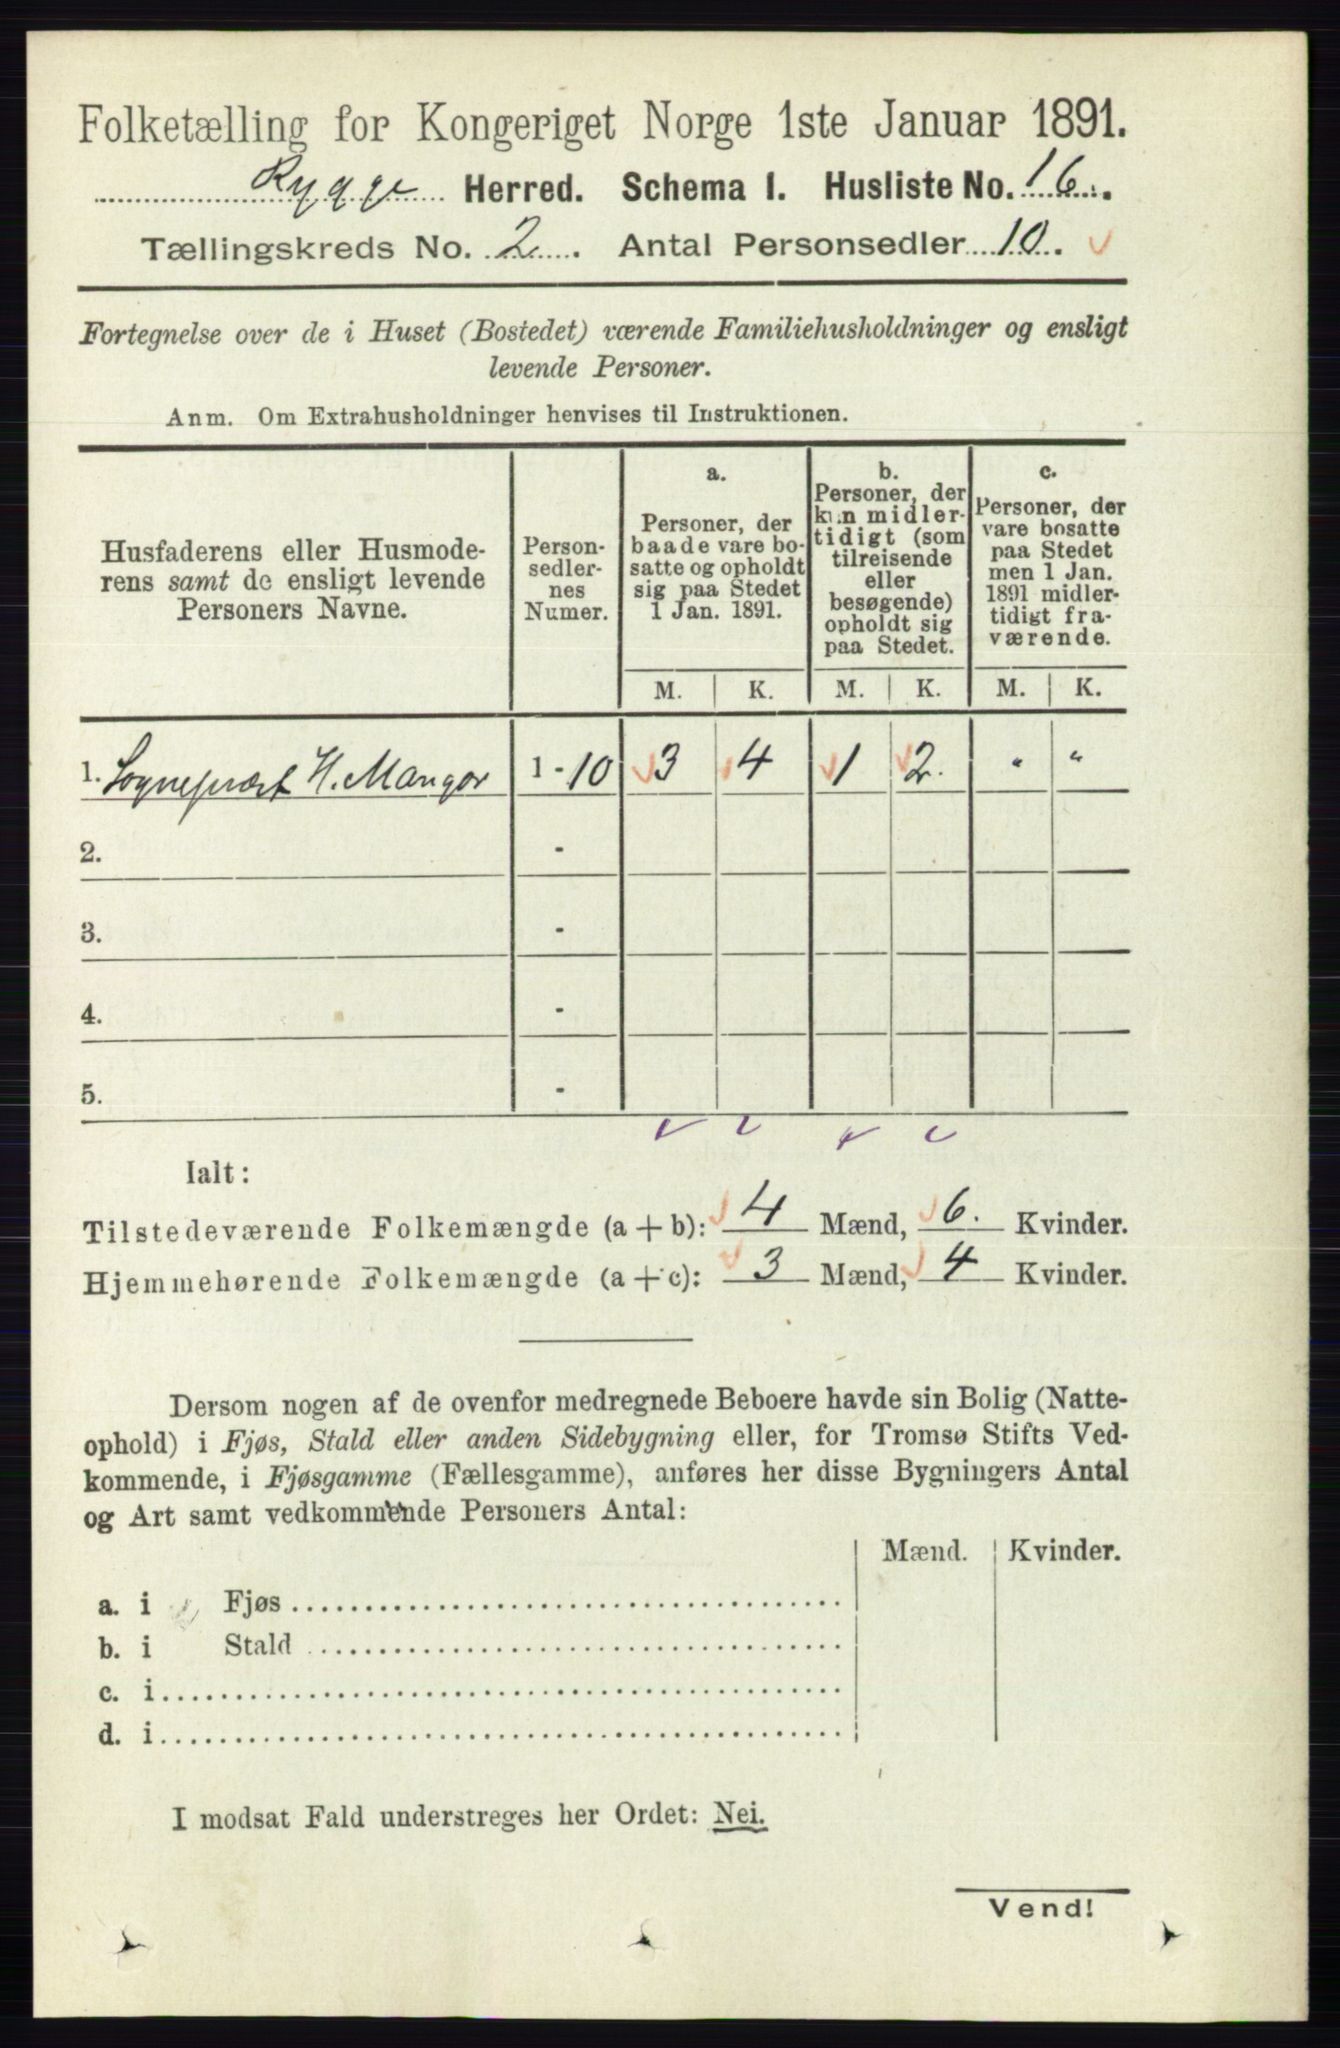 Folketælling for Kongeriget Norge 1ste Januar 1891.
Rygge Herred. Schema I. Husliste No. 16.
Tællingskreds No. 2. Antal Personsedler 10.
Fortegnelse over de i Huset (Bostedet) værende Familiehusholdninger og ensligt
levende Personer.
Anm. Om Extrahusholdninger henvises til Instruktionen.
Husfaderens eller Husmode-
rens samt de ensligt levende
Personers Navne.
Person-
sedler-
nes
Numer.
a.
Personer, der
baade vare bo-
satte og opholdt
sig paa Stedet
1 Jan. 1891.
b.
Personer, der
kun midler-
tidigt (som
tilreisende
eller
besøgende)
opholdt sig
paa Stedet.
c.
Personer, der
vare bosatte
paa Stedet
men 1 Jan.
1891 midler-
tidigt fra-
værende.
M. K. M. K. M. K.
1. Sogneprest H. Mangor 1 - 10 3 4 1 2. " "
2. -
3. -
4. -
5. -
Ialt:
Tilstedeværende Folkemængde (a + b): 4 Mænd, 6. Kvinder.
Hjemmehørende Folkemængde (a + c): 3 Mænd, 4 Kvinder.
Dersom nogen af de ovenfor medregnede Beboere havde sin Bolig (Natte-
ophold) i Fjøs, Stald eller anden Sidebygning eller, for Tromsø Stifts Ved-
kommende, i Fjøsgamme (Fællesgamme), anføres her disse Bygningers Antal
og Art samt vedkommende Personers Antal:
Mænd. Kvinder.
a. i Fjøs
b. i Stald
c. i
d. i
I modsat Fald understreges her Ordet: Nei.
Vend!